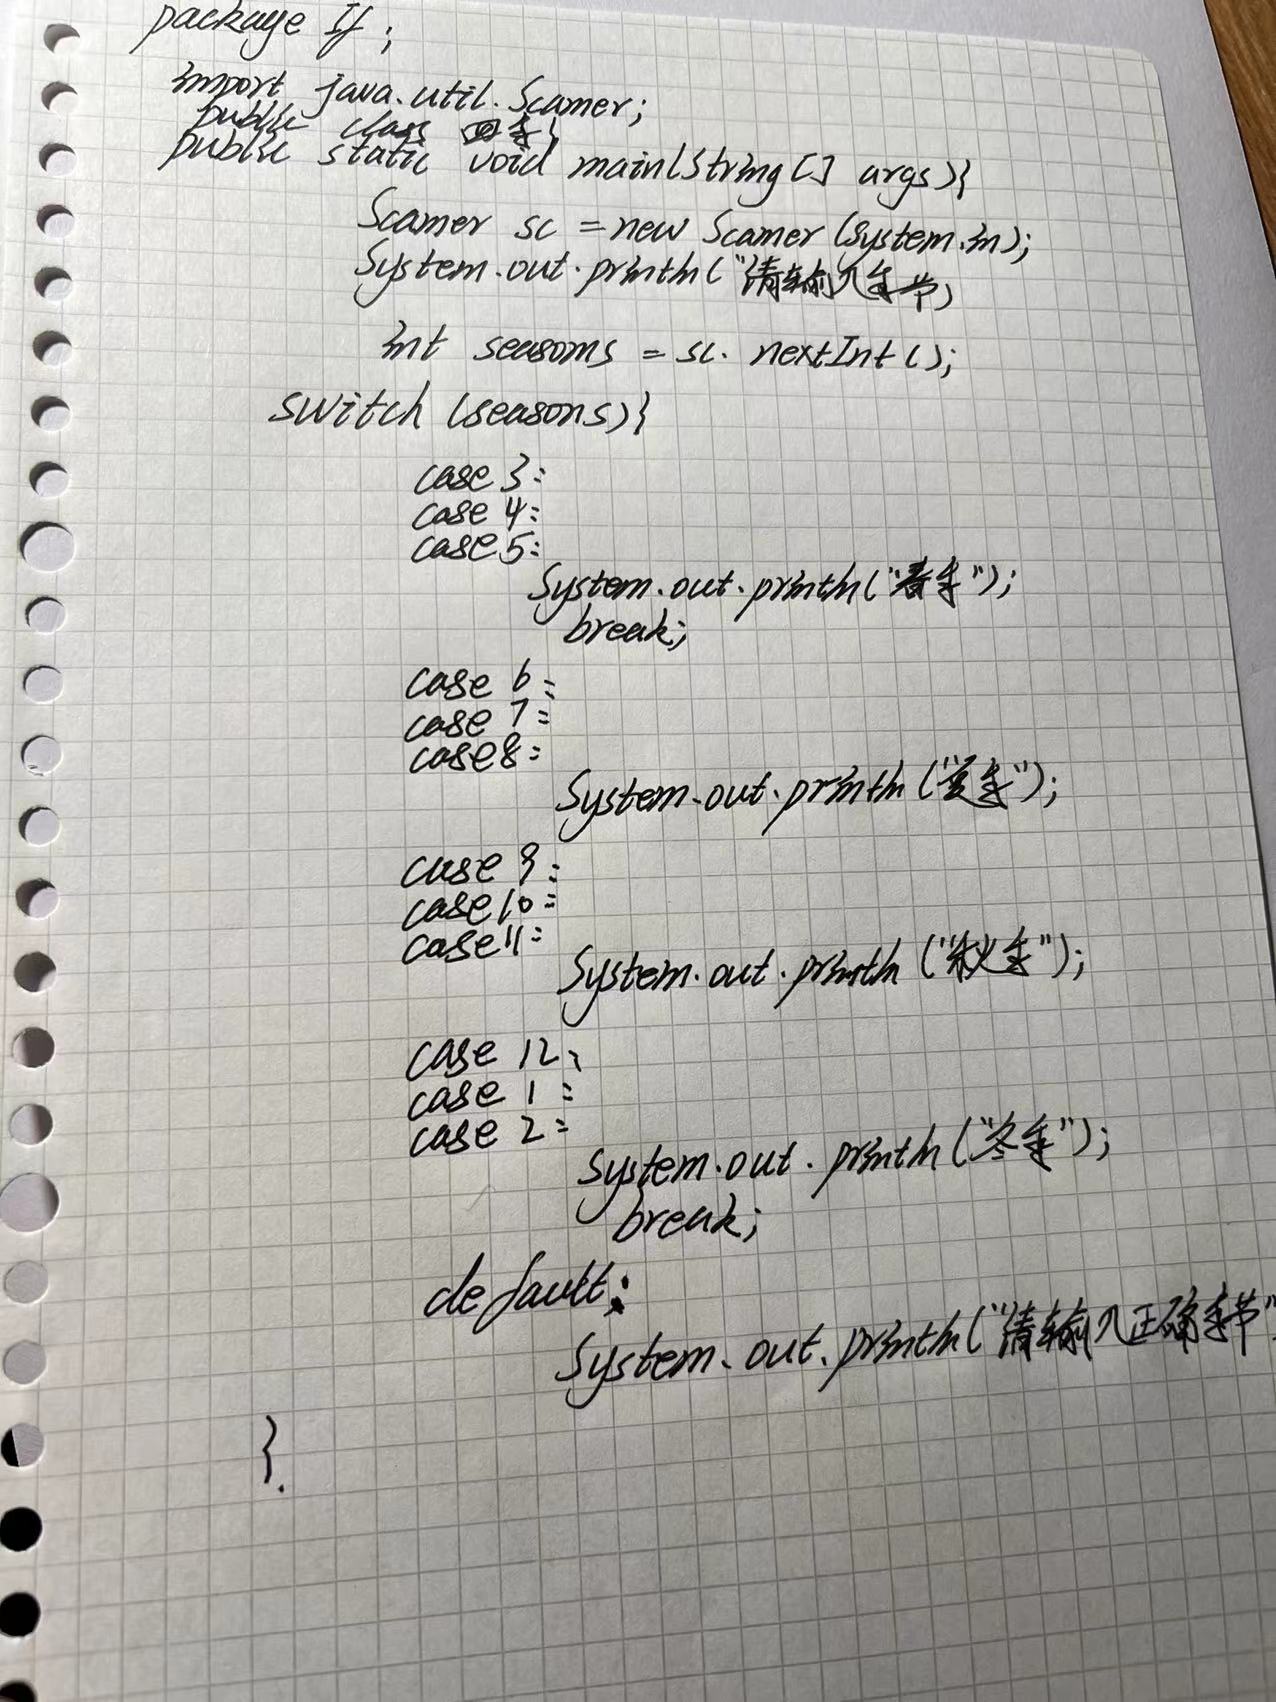 package If;
import java.util.Scanner;
public class 四季{
public static void main(String[] args){
Scanner sc = new Scanner(System.in);
System.out.println("请输入季节)
int seasons = sc. nextInt();
switch (seasons){
case 3:
case 4:
case 5:
System.out.println("春季");
break;
case 6:
case 7:
case 8:
System.out.println("夏季");
case 9:
case 10:
case 11:
System.out.println("秋季");
case 12:
case 1:
case 2:
System.out.println("冬季");
break;
default:
System.out.println("请输入正确季节"
}